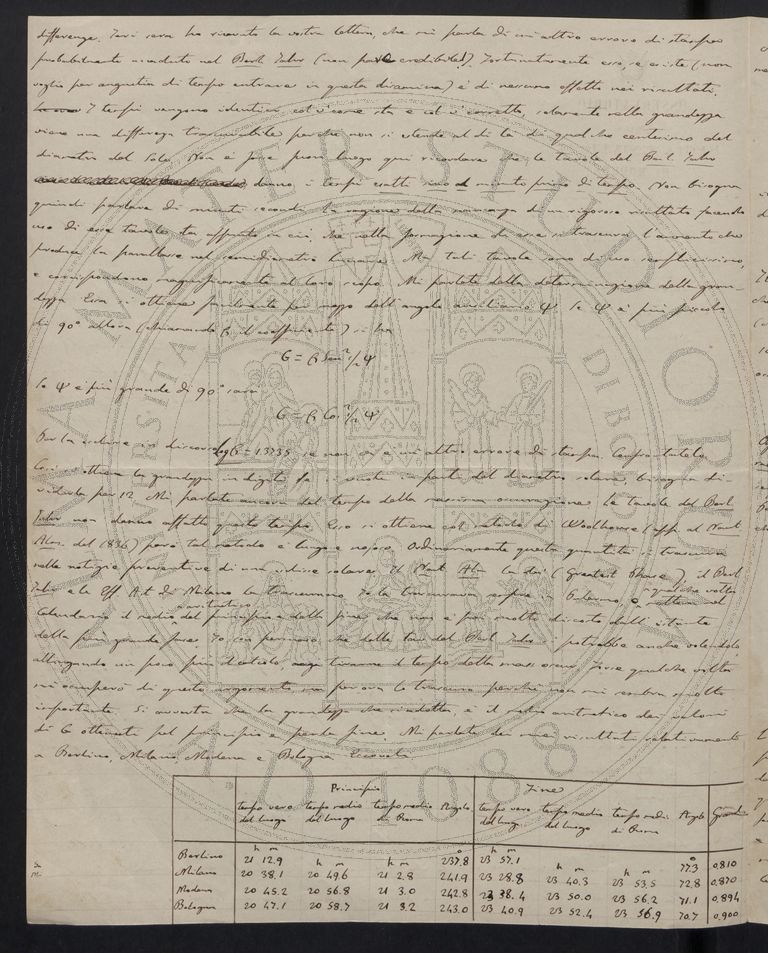 differenze. Ieri sera ho ricevuto la vostra lettera, che mi parla di un'altro errore di stampa
probabilmente accaduto nel Berl. Jahr (non par credibile!). Fortunatamente esso, se esiste (non
voglio per angustia di tempo entrare in questa disamina) è di nessuno effetto nei risultati.
I tempi vengono identici col vicene sta e col vi corretto, solamente nella grandezza
viene una differenza trascurabile perchè non si stende al di là di qualche centesimo del
diametro del Sole. Non è fuor luogo qui ricordare che le tavole del Berl. Jahr
danno i tempi esatti sino al minuto primo di tempo. Non bisogna
quindi parlare di minuti secondi. La ragione della mancanza di un rigoroso risultato facendo
uso di esse tavole sta appunto in ciò, che nella formazione di esse si trascura l'aumento che
produce la parallasse nel semidiametro lunare. Ma tali tavole sono di uso semplicissimo,
e corrispondono magnificamente al loro scopo. Mi parlate della determinazione della gran-
dezza. Essa si ottiene facilmente per mezzo dell'angolo ausiliario Ψ. Se Ψ è più piccolo
di 90° allora (chiamando β il coefficiente) si ha
G = β Sen² ½ Ψ
Se Ψ è più grande di 90° sarà
G = β Cos² ½ Ψ
Per la eclisse in discorso log β = 1.3735 se non vi è un'altro errore di stampa.
Così si ottiene la grandezza in digiti, se si vuole in parti del diametro solare, bisogna di-
viderla per 12. Mi parlate ancora del tempo della massima occultazione. Le tavole del Berl.
Jahr non danno affatto questo tempo. Esso si ottiene col metodo di Woolhouse (app. al Naut.
Alm. del 1836) però tal metodo è lungo e nojoso. Ordinariamente questa quantità si trascura
nelle notizie preventive di una eclisse solare. Il Naut. Alm. la dà (Greatest Phase), il Berl.
Jahr e la Eff. Ast. di Milano la trascurano. Io la trascurava sempre in Palermo, o qualche volta metteva nel
Calendario il medio aritmetico del principio e della fine che non è poi molto discosto dall'istante
della più grande fase. Io son persuaso che dalle tavole del Berl. Jahr si potrebbe anche volendolo
allungando un poco più il calcolo, trarne il tempo della mass. oscur. Forse qualche volta
mi occuperò di questo argomento, ma per ora lo trascuro perchè non mi sembra molto
importante. Si avverta che la grandezza che si adotta, è il medio aritmetico dei valori
di G ottenuti pel principio e per la fine. Mi parlate dei miei risultati relativamente
a Berlino, Milano, Modena e Bologna. Eccoveli
Principio Fine
tempo vero del luogo tempo medio del luogo tempo medio di Roma Angolo tempo vero del luogo tempo medio del luogo tempo medio di Roma Angolo Grandezza
Berlino 21 12.9 237.8 23 57.1 77.3 0,810
Milano 20 38.1 20 49.6 21 2.8 241.9 23 28.8 23 40.3 23 53.5 72.8 0.870
Modena 20 45.2 20 56.8 21 3.0 242.8 23 38.4 23 50.0 23 56.2 71.1 0.894
Bologna 20 47.1 20 58.7 21 3.2 243.0 23 40.9 23 52.4 23 56.9 70.7 0.900